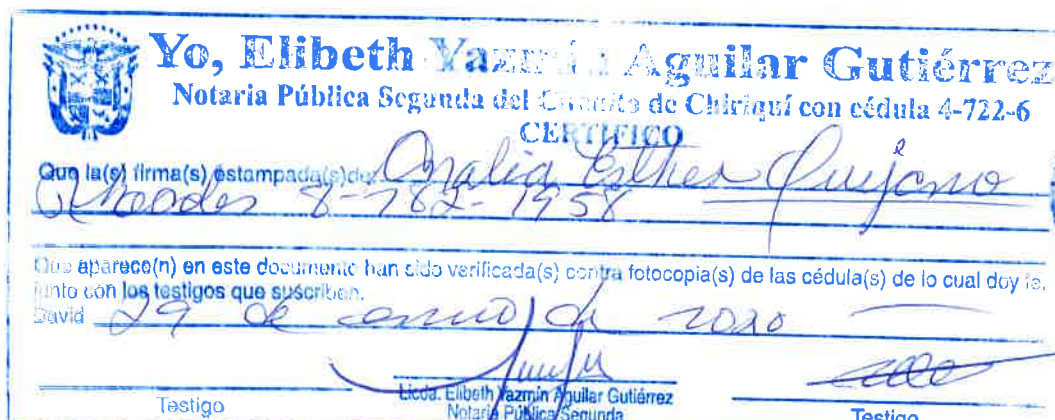 Yo, Elibeth Yazmín Aguilar Gutiérrez
Notaria Pública Segunda del Circuito de Chiriquí con cédula 4-722-6
CERTIFICO
Que la(s) firma(s) estampada(s) de: Analia Esther Quijano
Rhoades 8-782-1958
Que aparece(n) en este documento han sido verificada(s) contra fotocopia(s) de las cédula(s) de lo cual doy fe,
junto con los testigos que suscriben.
David 29 de enero de 2020
Licda. Elibeth Yazmín Aguilar Gutiérrez
Testigo Notaria Pública Segunda Testigo